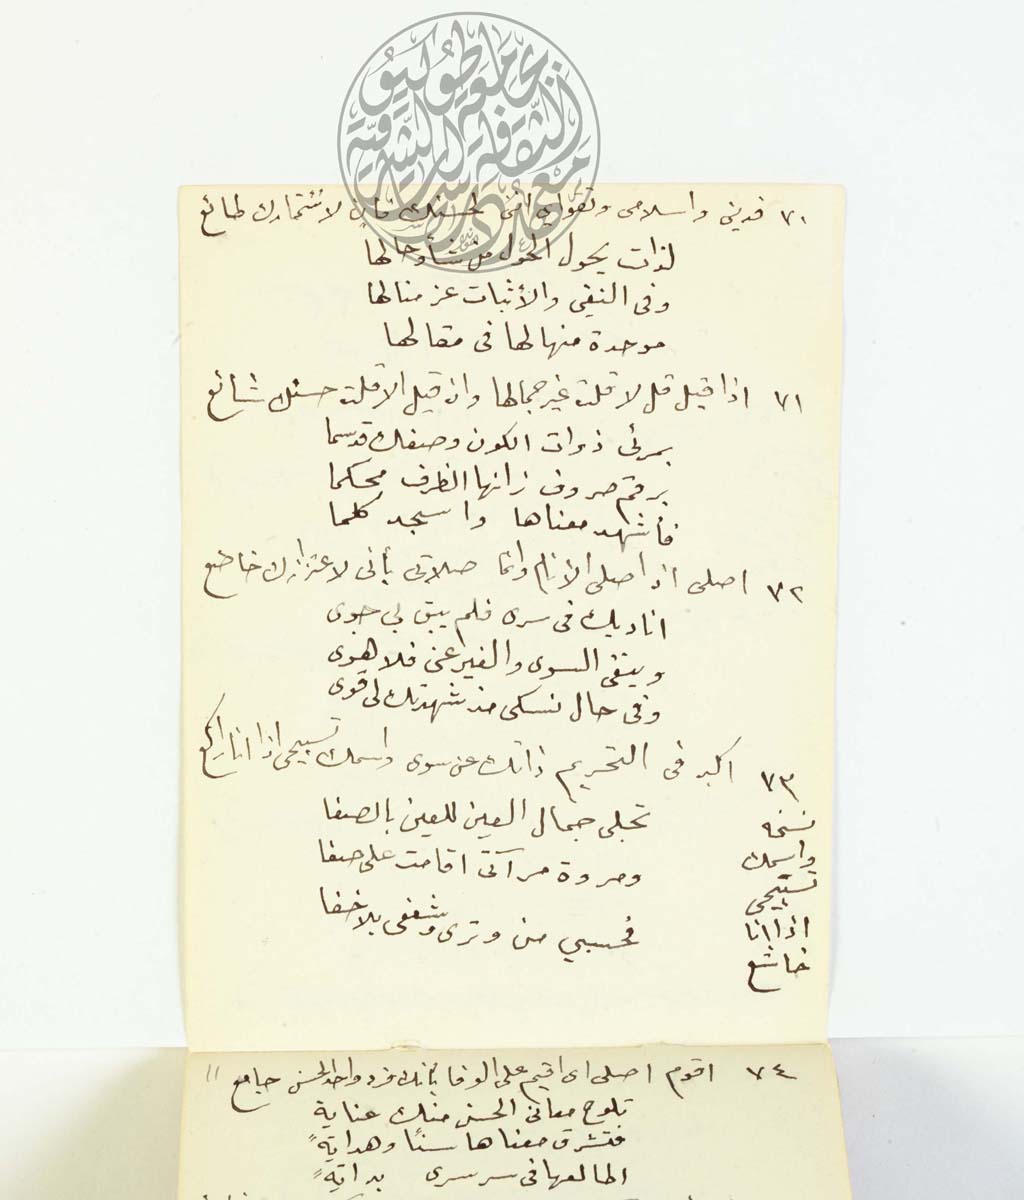 جامعة طوكيو
معهد الثقافة والدراسات الشرقية
٧٠ فديني واسلامي وتقواي انني لحسنك فان لائتمارك طائع
لذات يحول الحول من شأو حالها
وفي النفي والأثبات عز منالها
موحدة منها لها في مقالها
٧١ اذا قيل قل لا قلت غير جمالها وان قيل الا قلت حسنك شائع
بمرئي ذرات الكون وصفك قد سما
برقم حروف زانها الظرف محكما
فأشهد معناها واسجد كلما
٧٢ اصلي اذا صلى الانام وانما صلاتي بأني لاعتزازك خاضع
اناديك في سري فلم يبق لي جوى
وينفي السوى والغير عني فلا هوى
وفي حال نسكي مذ شهدتك لي قوى
٧٣ اكبر في التحريم ذاتك عن سوى واسمك تسبيحي اذا انا راكع
نسخه
واسمك
تسبيحي
اذا انا
خاشع
تجلى جمال العين للعين بالصفا
ومروة مرآتي اقامت على صفا
فحسبي من وتري وشفعي بلا خفا
٧٤ اقوم اصلي اي اقيم على الوفا بأنك فرد واحد الحسن جامع
تلوح معاني الحسن منك عناية
فتشرق معناها سنًا وهدايةً
اطالعها في سر سري بدايةً